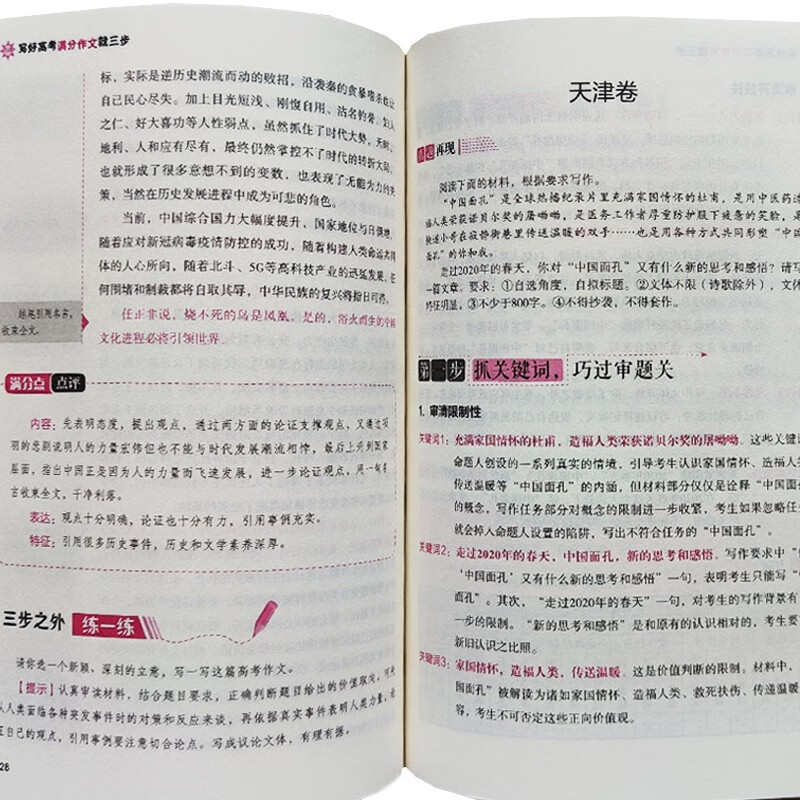 写好高考满分作文就三步
标，实际是逆历史潮流而动的败招，沿袭秦的贪暴嗜杀
自己民心尽失。加上目光短浅、刚愎自用、沽名钓誉、妇人
之仁、好大喜功等人性弱点，虽然抓住了时代大势，天时、
地利、人和应有尽有，最终仍然掌控不了时代的转折大局，
也就形成了很多意想不到的变数，也表现了无能为力的失
策，当然在历史发展进程中成为可悲的角色。
当前，中国综合国力大幅度提升，国家地位与日俱增，
随着应对新冠病毒疫情防控的成功，随着构建人类命运共同
体的人心所向，随着北斗、5G等高科技产业的迅猛发展，任
何围堵和制裁都将自取其辱，中华民族的复兴将指日可待。
任正非说，烧不死的鸟是凤凰。是的，浴火而生的中国
文化进程必将引领世界。
结尾引用名言，
收束全文。
满分点 点评
内容：先表明态度，提出观点，通过两方面的论证支撑观点，又通过项
羽的悲剧说明人的力量宏伟但也不能与时代发展潮流相悖，最后上升到国家
层面，指出中国正是因为人的力量而飞速发展，进一步论证观点，用一句名
言收束全文，干净利落。
表达：观点十分明确，论证也十分有力，引用事例充实。
特征：引用很多历史事件，历史和文学素养深厚。
三步之外 练一练
请你选一个新颖、深刻的立意，写一写这篇高考作文。
【提示】认真审读材料，结合题目要求，正确判断题目给出的价值取向，可
从人类面临各种突发事件时的对策和反应来谈，再依据真实事件表明人类力量，
在自己的观点，引用事例要注意切合论点。写成议论文体，有理有据。
28
天津卷
真题再现
阅读下面的材料，根据要求写作。
“中国面孔”是全球热播纪录片里充满家国情怀的杜甫，是用中医药造
福人类荣获诺贝尔奖的屠呦呦，是医务工作者厚重防护服下疲惫的笑脸，是
快递小哥在寂静街巷里传送温暖的双手……也是用各种方式共同形塑“中国
面孔”的你和我。
走过2020年的春天，你对“中国面孔”又有什么新的思考和感悟？请写
一篇文章。要求：①自选角度，自拟标题。②文体不限（诗歌除外），文体
特征明显。③不少于800字。④不得抄袭，不得套作。
第一步 抓关键词，巧过审题关
1. 审清限制性
关键词1：充满家国情怀的杜甫，造福人类荣获诺贝尔奖的屠呦呦。这些关键词
命题人创设的一系列真实的情境，引导考生认识家国情怀、造福人类、
传送温暖等“中国面孔”的内涵，但材料部分仅仅是诠释“中国面孔”
的概念，写作任务部分对概念的限制进一步收紧，考生如果忽略任务
就会掉入命题人设置的陷阱，写出不符合任务的“中国面孔”。
关键词2：走过2020年的春天，中国面孔，新的思考和感悟。写作要求中“
‘中国面孔’又有什么新的思考和感悟”一句，表明考生只能写“中国
面孔”。其次，“走过2020年的春天”一句，对考生的写作背景有
一步的限制。“新的思考和感悟”是和原有的认识相对的，考生要
新旧认识之比照。
关键词3：家国情怀，造福人类，传送温暖。这是价值判断的限制。材料中，“
国面孔”被解读为诸如家国情怀、造福人类、救死扶伤、传送温暖
容，考生不可否定这些正向价值观。